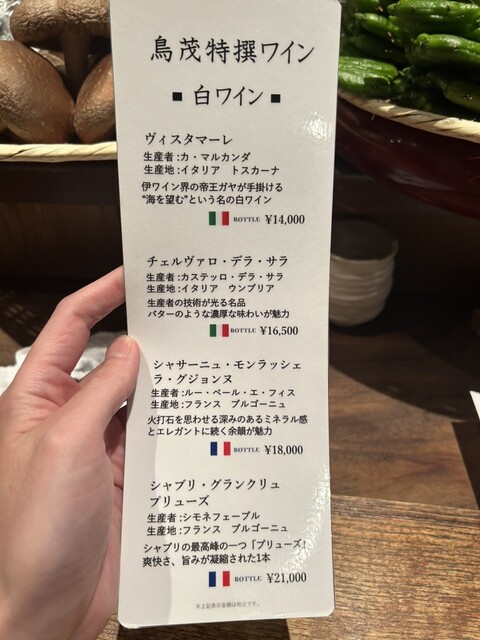 鳥茂特撰ワイン
■ 白ワイン ■
ヴィスタマーレ
生産者:カ・マルカンダ
生産地:イタリア トスカーナ
伊ワイン界の帝王ガヤが手掛ける
“海を望む”という名の白ワイン
BOTTLE ¥14,000
チェルヴァロ・デラ・サラ
生産者:カステッロ・デラ・サラ
生産地:イタリア ウンブリア
生産者の技術が光る名品
バターのような濃厚な味わいが魅力
BOTTLE ¥16,500
シャサーニュ・モンラッシェ
ラ・グジョンヌ
生産者:ルー・ペール・エ・フィス
生産地:フランス ブルゴーニュ
火打石を思わせる深みのあるミネラル感
とエレガントに続く余韻が魅力
BOTTLE ¥18,000
シャブリ・グランクリュ
ブリューズ
生産者:シモネフェーブル
生産地:フランス ブルゴーニュ
シャブリの最高峰の一つ「プリューズ」
爽快さ、旨みが凝縮された1本
BOTTLE ¥21,000
※上記表示金額は税込です。